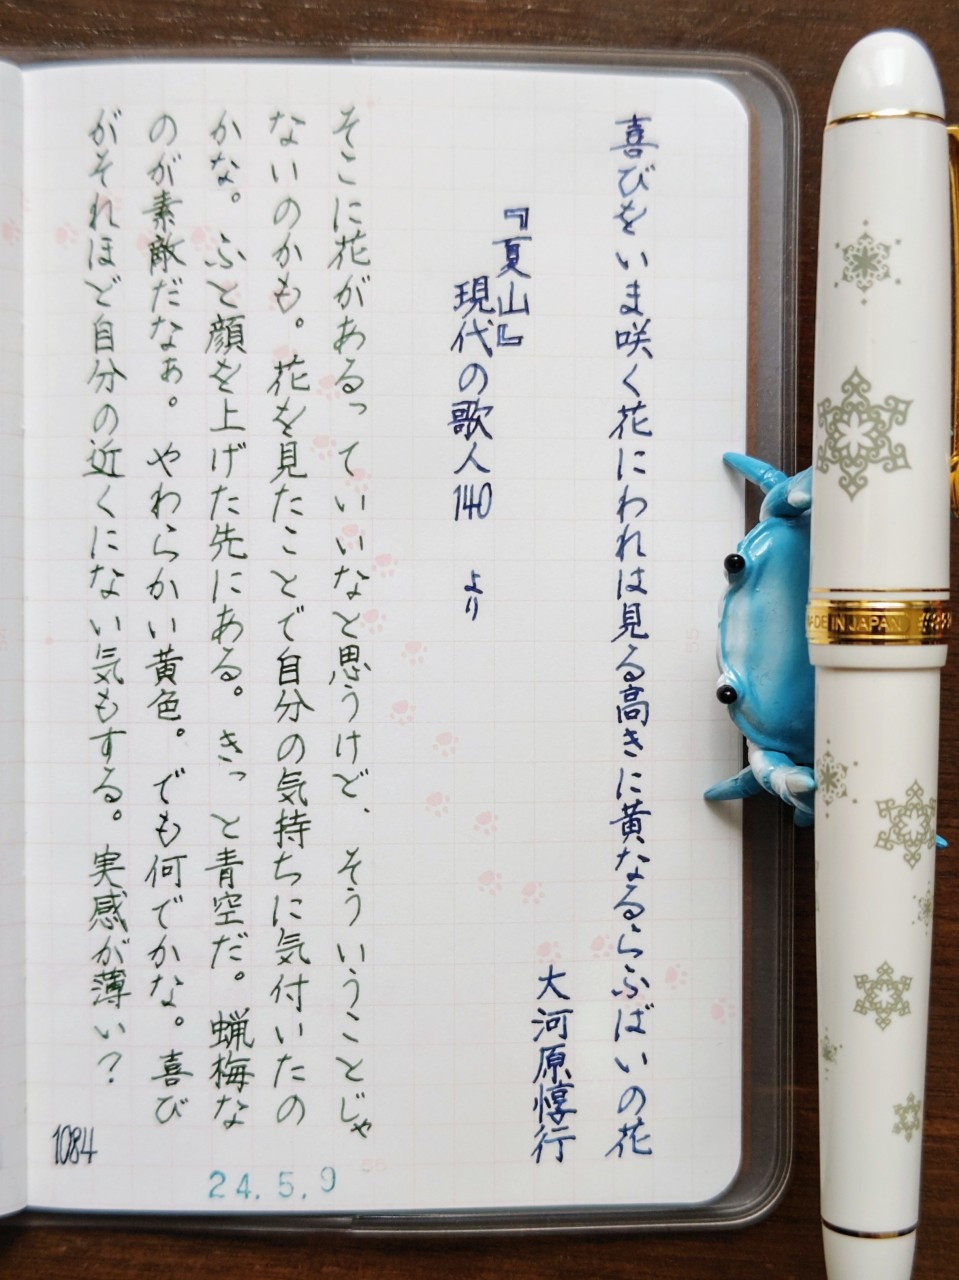 喜びをいま咲く花にわれは見る高きに黄なるらふばいの花
大河原惇行
『夏山』
現代の歌人140 より
そこに花があるっていいなと思うけど、そういうことじゃ
ないのかも。花を見たことで自分の気持ちに気付いたの
かな。ふと顔を上げた先にある。きっと青空だ。蝋梅な
のが素敵だなぁ。やわらかい黄色。でも何でかな。喜び
がそれほど自分の近くにない気もする。実感が薄い？
1084
24.5.9
MADE IN JAPAN